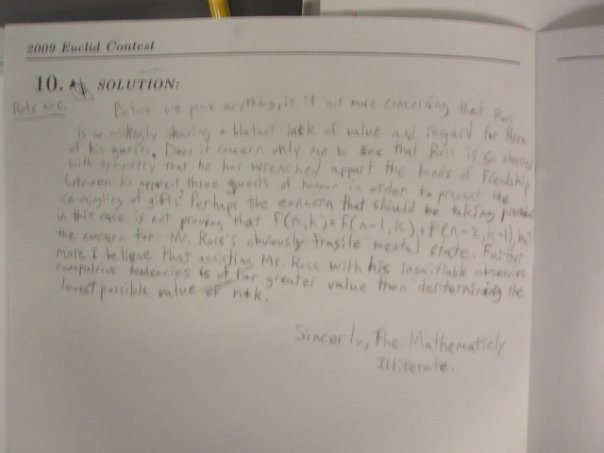 2009 Euclid Contest
10. SOLUTION:
Parts a-c.
Before we prove anything, is it not more concerning that Ross
is so willingly showing a blatant lack of value and regard for three
of his guests. Does it concern only me to see that Ross is so obsessed
with symmetry that he has wrenched appart the bonds of friendship
between his apparent three guests of honour in order to prevent the
comingling of gifts. Perhaps the concern that should be taking
in this case is not proving that f(n,k)=f(n-1,k)+f(n-2,k-1), but
the concern for Mr. Ross's obviously fragile mental state. Further
more I believe that assisting Mr. Ross with his insaitiable obsesive
compulsive tendencies is of far greater value then dertermining the
lowest possible value of n+k.
Sincerly, The Mathematicly
Illiterate.